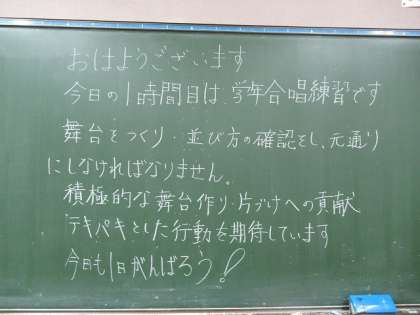 おはようございます
今日の1時間目は、学年合唱練習です
舞台をつくり・並び方の確認をし、元通り
にしなければなりません。
積極的な舞台作り・片づけへの貢献
テキパキとした行動を期待しています
今日も1日がんばろう!